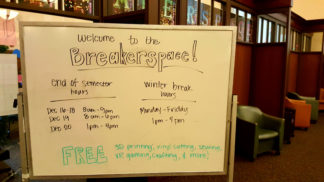 Welcome to the
Breakerspace!
End of semester
hours
Dec 16-18 8am-9pm
Dec 19 8am-6pm
Dec 20 1pm-4pm
Winter break
hours
Monday-Fridays
1pm-4pm
FREE 3D printing, vinyl cutting, sewing,
VR gaming, crafting, & more!